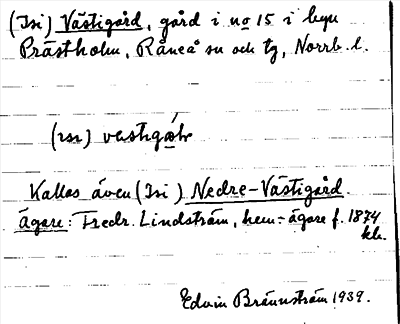 (Isi) Västigård, gård i no 15 i byn
Prästholm, Råneå sn och tg, Norrb. l.
Kallas även (Isi) Nedre-Västigård
ägare: Fredr. Lindström, hem.-ägare f. 1874
Edvin Brännström 1939.